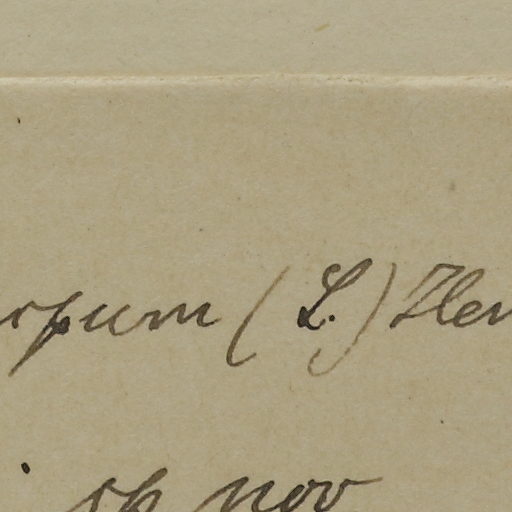 rpum (L.) Hen
sp nov